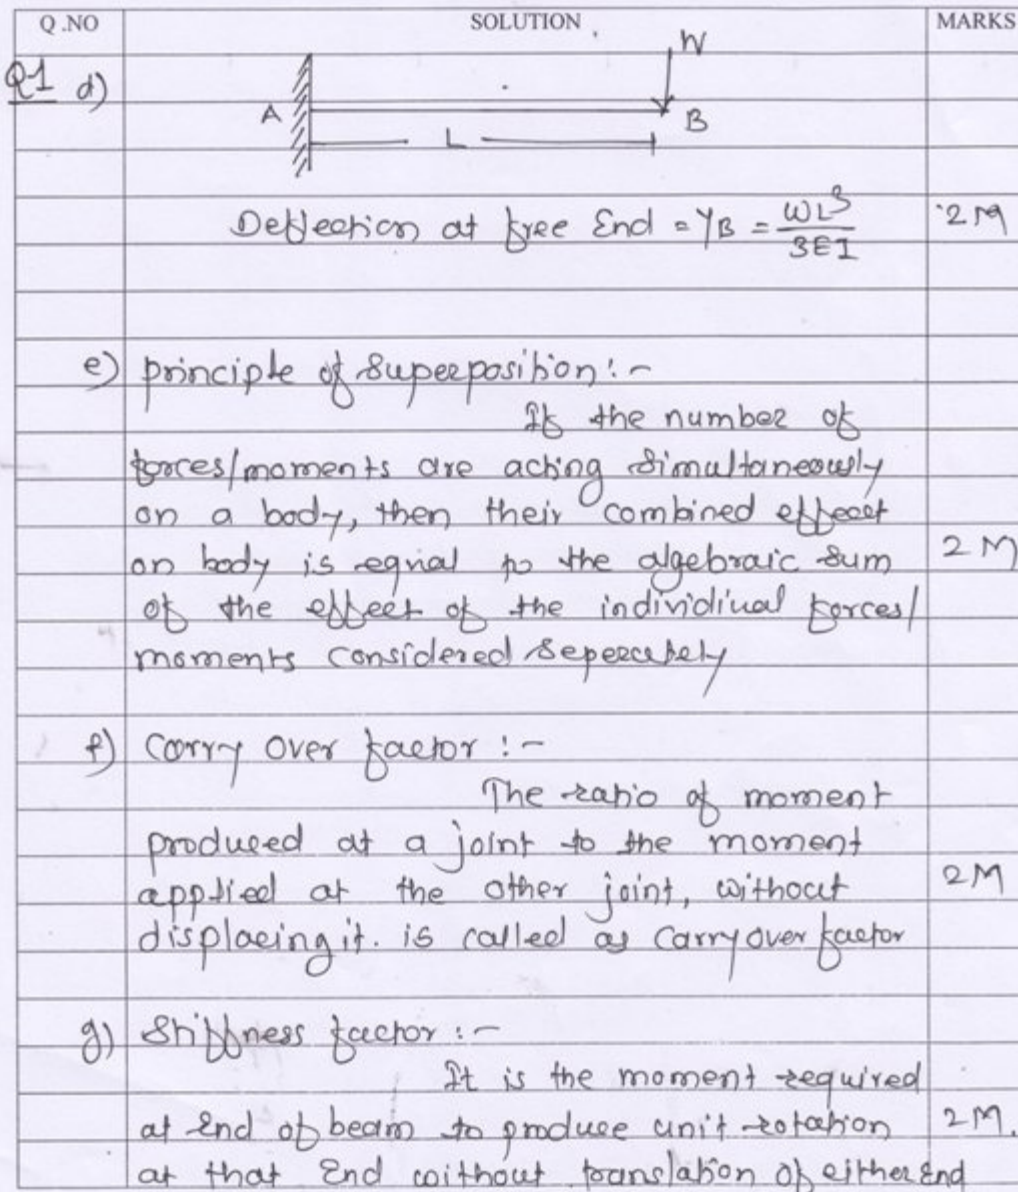 Q.NO SOLUTION MARKS
W
Q1 d)
A B
L
Deflection at free End = yB = WL³/3EI 2M
e) principle of superposition:-
If the number of
forces/moments are acting simultaneously
on a body, then their combined effect
on body is equal to the algebraic sum 2M
of the effect of the individiual forces/
moments considered seperately
f) Carry Over factor :-
The ratio of moment
produced at a joint to the moment
applied at the other joint, without 2M
displacing it. is called as Carryover factor
g) Stiffness factor :-
It is the moment required
at end of beam to produce unit rotation 2M.
at that End without translation of either End